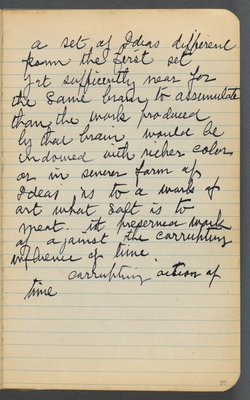 a set of Ideas different
from the first set
yet sufficently near for
the same brain to assumulate
than the work produced
by that brain would be
endowed with richer color
or in severer form as
Ideas is to a work of
art what Salt is to
meat. it preserves work
of against the corrupting
influence of time.
corrupting action of
time
37